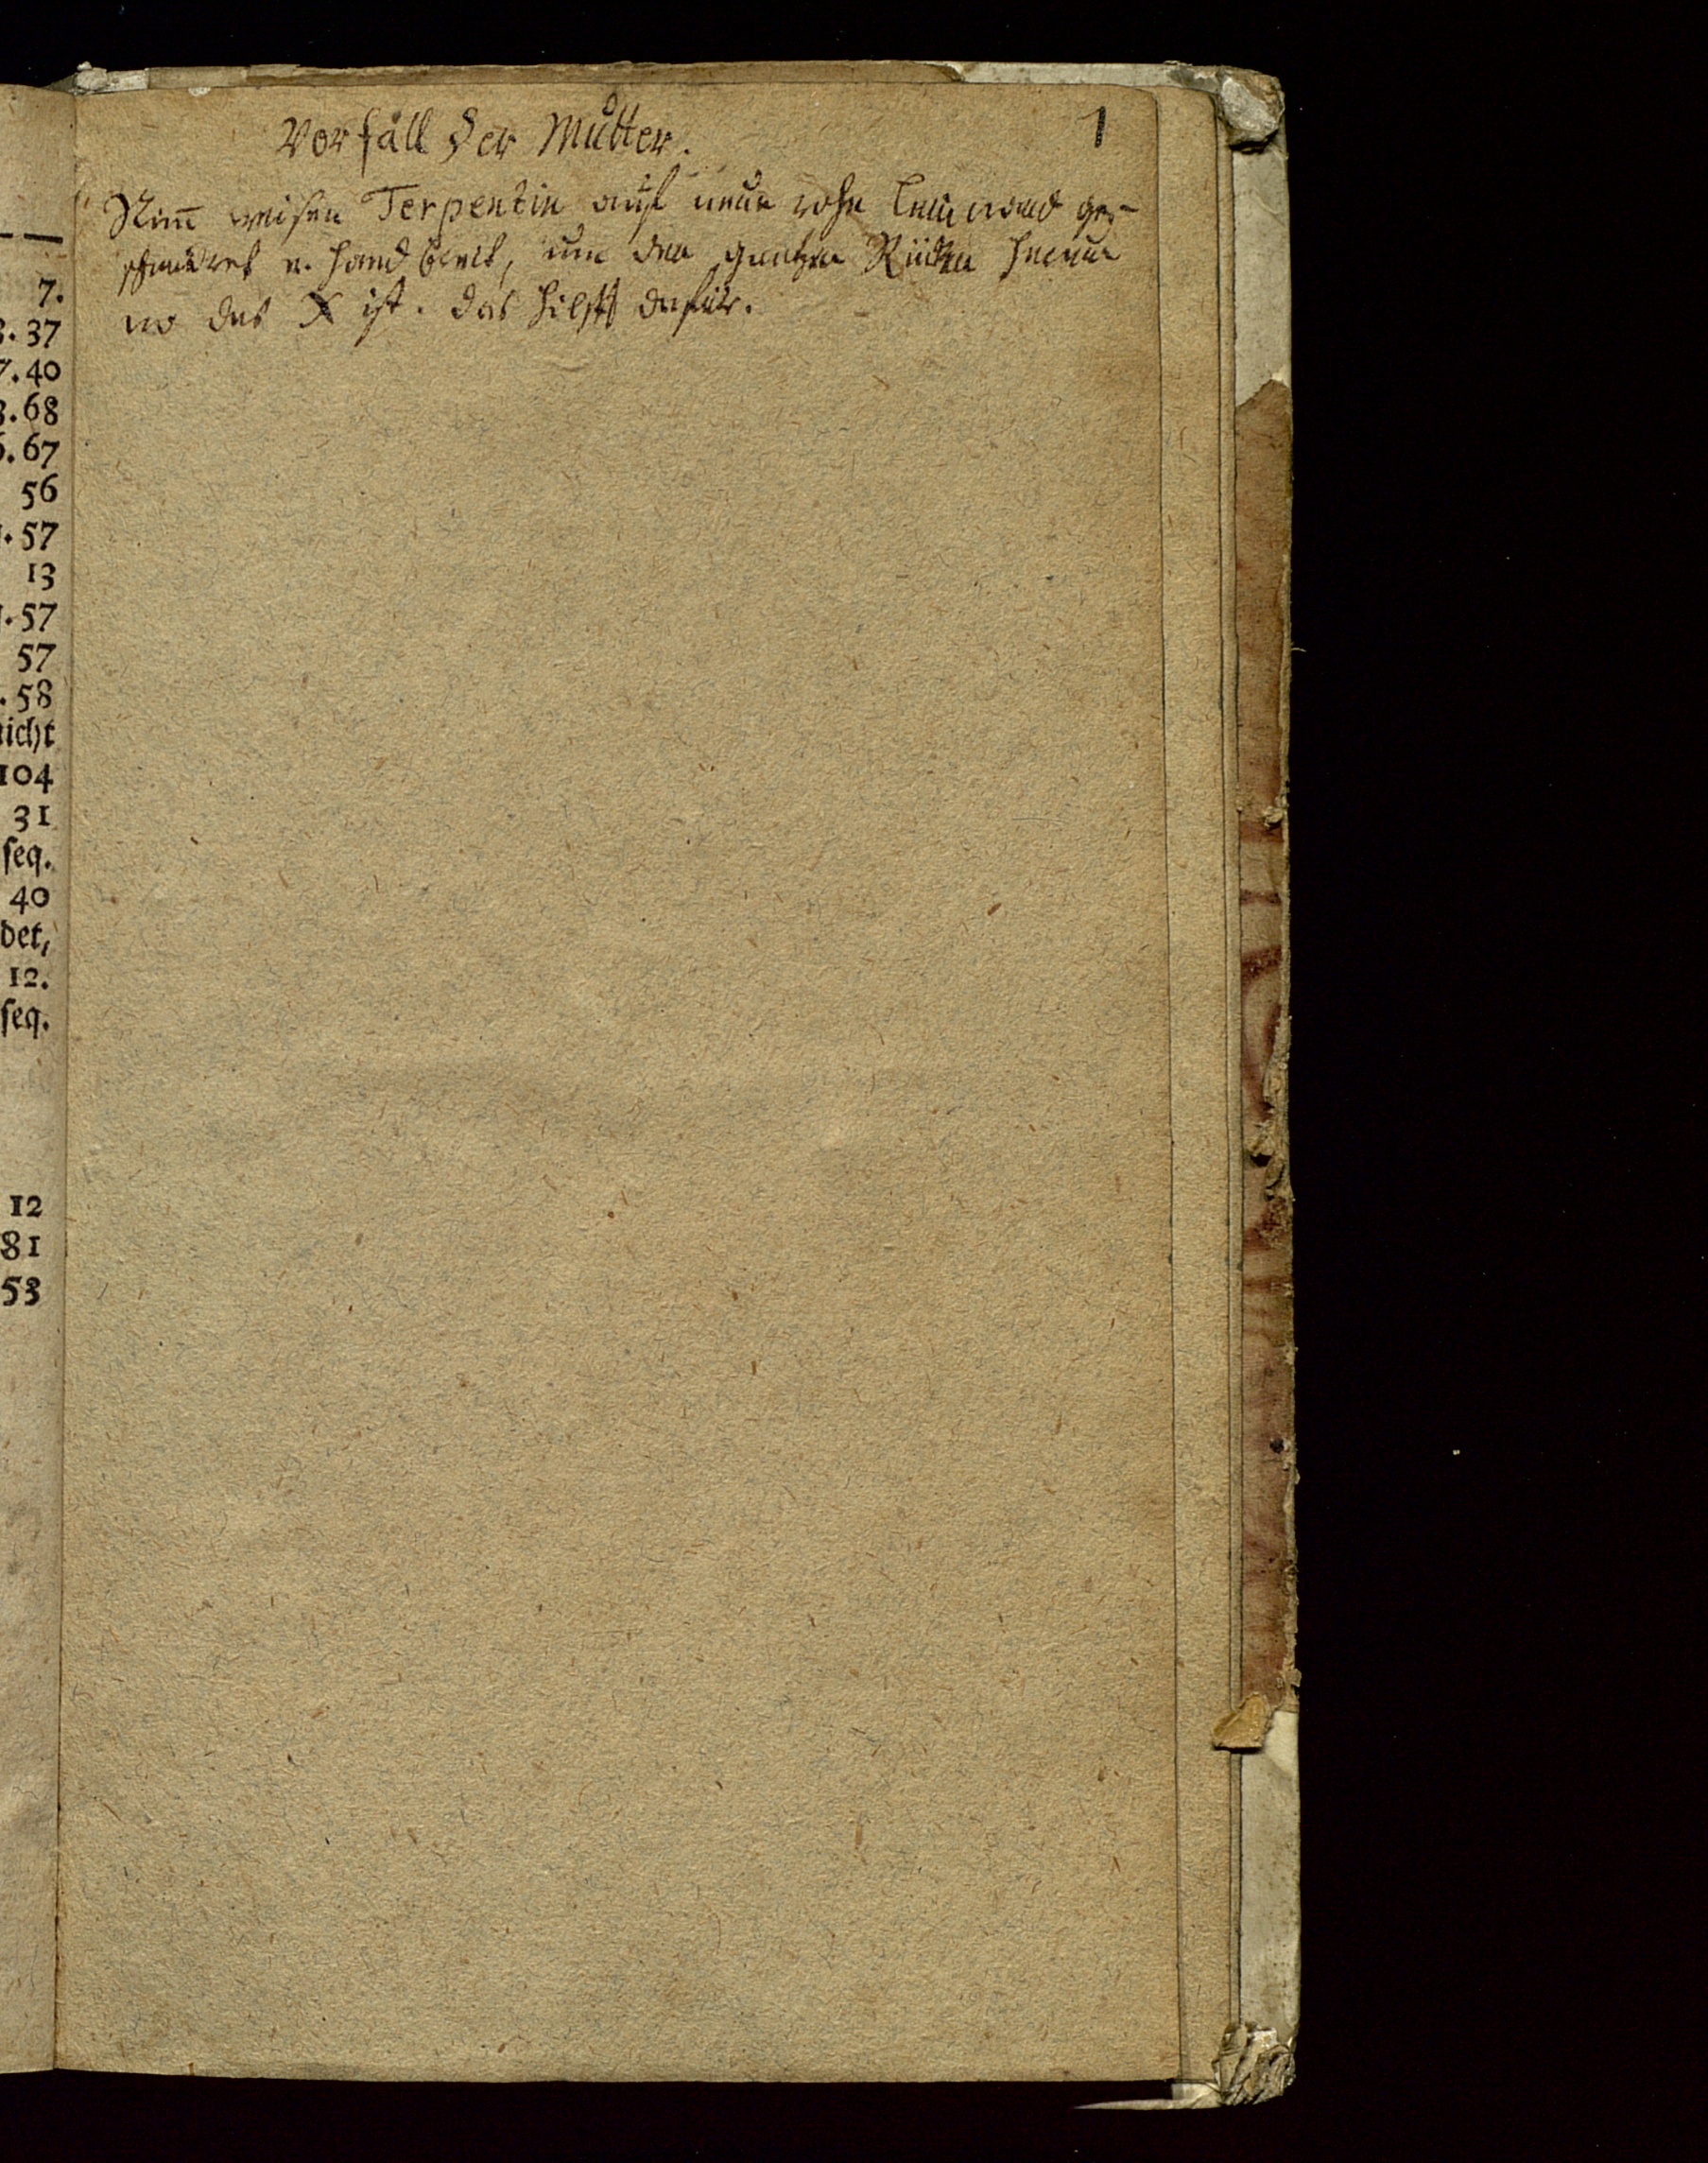 7.
3.37
7.40
3.68
6.67
56
.57
13
.57
57
.58
nicht
104
31
seq.
40
det,
12.
seq.
12
81
53
1
Vorfall der Mutter.
Nim̅ weisen Terpentin auf neue rohe Leinwand ge-
schmieret u. hand breit, um den gantzen Rücken herum
wo das X ist. das hilfft dafür.